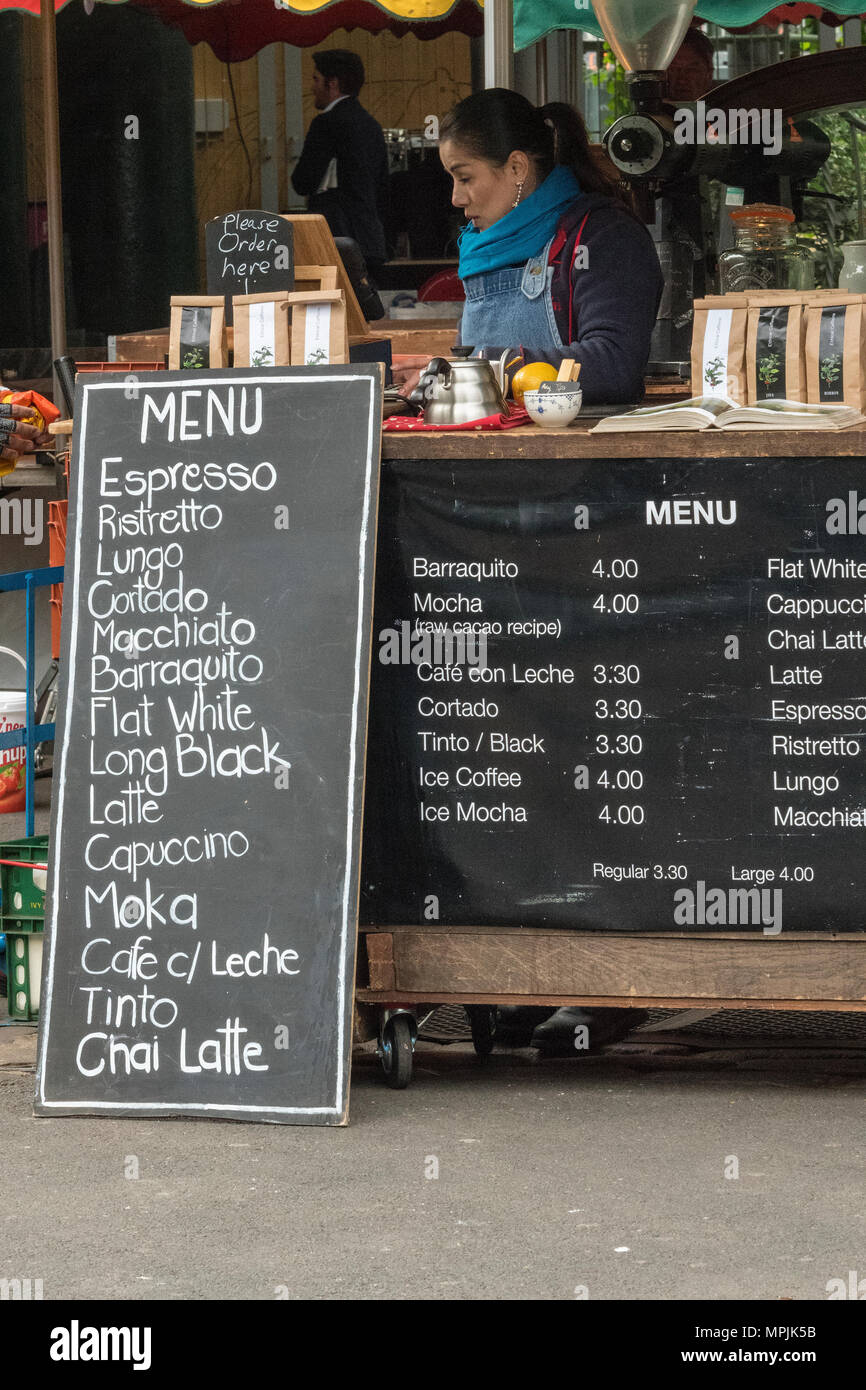 Please
Order
here
MENU
Espresso
Ristretto
Lungo
Cortado
Macchiato
Barraquito
Flat White
Long Black
Latte
Capuccino
Moka
Cafe c/ Leche
Tinto
Chai Latte
MENU
Barraquito 4.00
Mocha 4.00
(raw cacao recipe)
Café con Leche 3.30
Cortado 3.30
Tinto / Black 3.30
Ice Coffee 4.00
Ice Mocha 4.00
Regular 3.30 Large 4.00
Flat White
Cappucci
Chai Latte
Latte
Espresso
Ristretto
Lungo
Macchiat
alamy
Image ID: MPJK5B
www.alamy.com